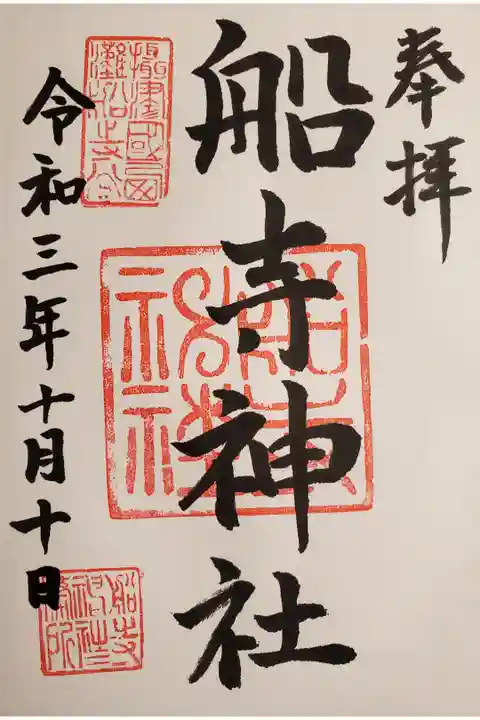 奉拝
船寺神社
令和三年十月十日
船寺神社
船寺神社社務所